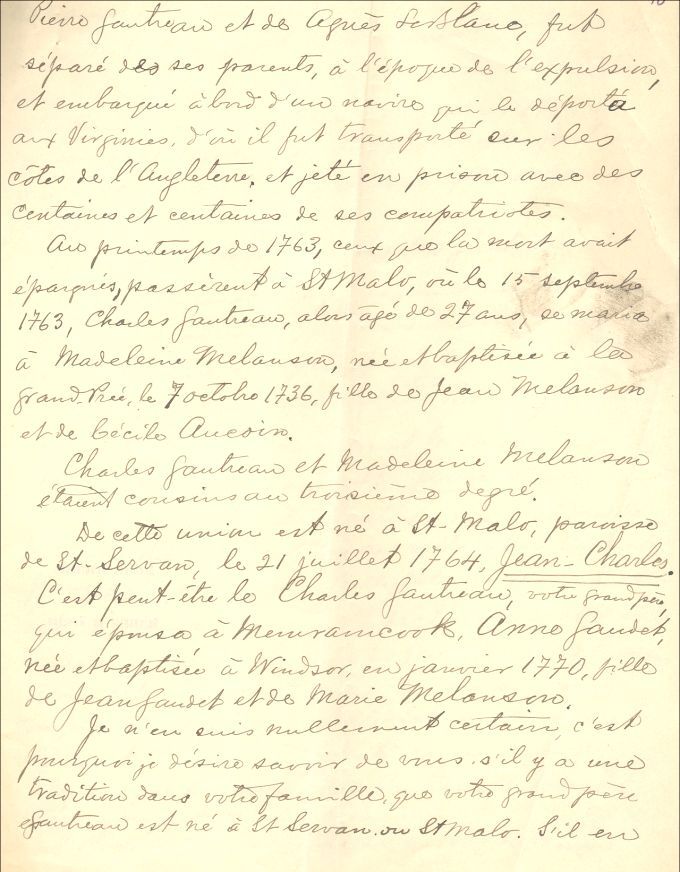 Pierre Gautreau et de Agnès LeBlanc, fut
séparé des ses parents, à l'époque de l'expulsion,
et embarqué à bord d'un navire qui le déporta
aux Virginies, d'où il fut transporté sur les
côtes de l'Angleterre, et jeté en prison avec des
centaines et centaines de ses compatriotes.
Au printemps de 1763, ceux que la mort avait
épargnés, passèrent à St Malo, où le 15 septembre
1763, Charles Gautreau, alors âgé de 27 ans, se maria
à Madeleine Melanson, née et baptisée à la
grand-Prée, le 7 octobre 1736, fille de Jean Melanson
et de Cécile Aucoin.
Charles Gautreau et Madeleine Melanson
étaient cousins au troisième degré.
De cette union est né à St-Malo, paroisse
de St-Servan, le 21 juillet 1764, Jean-Charles.
C'est peut-être le Charles Gautreau, votre grand père,
qui épousa à Memramcook, Anne Gaudet,
née et baptisée à Windsor, en janvier 1770, fille
de Jean Gaudet et de Marie Melanson.
Je n'en suis nullement certain, c'est
pourquoi je désire savoir de vous s'il y a une
tradition dans votre famille, que votre grand père
Gautreau est né à St Servan ou St Malo. S'il en